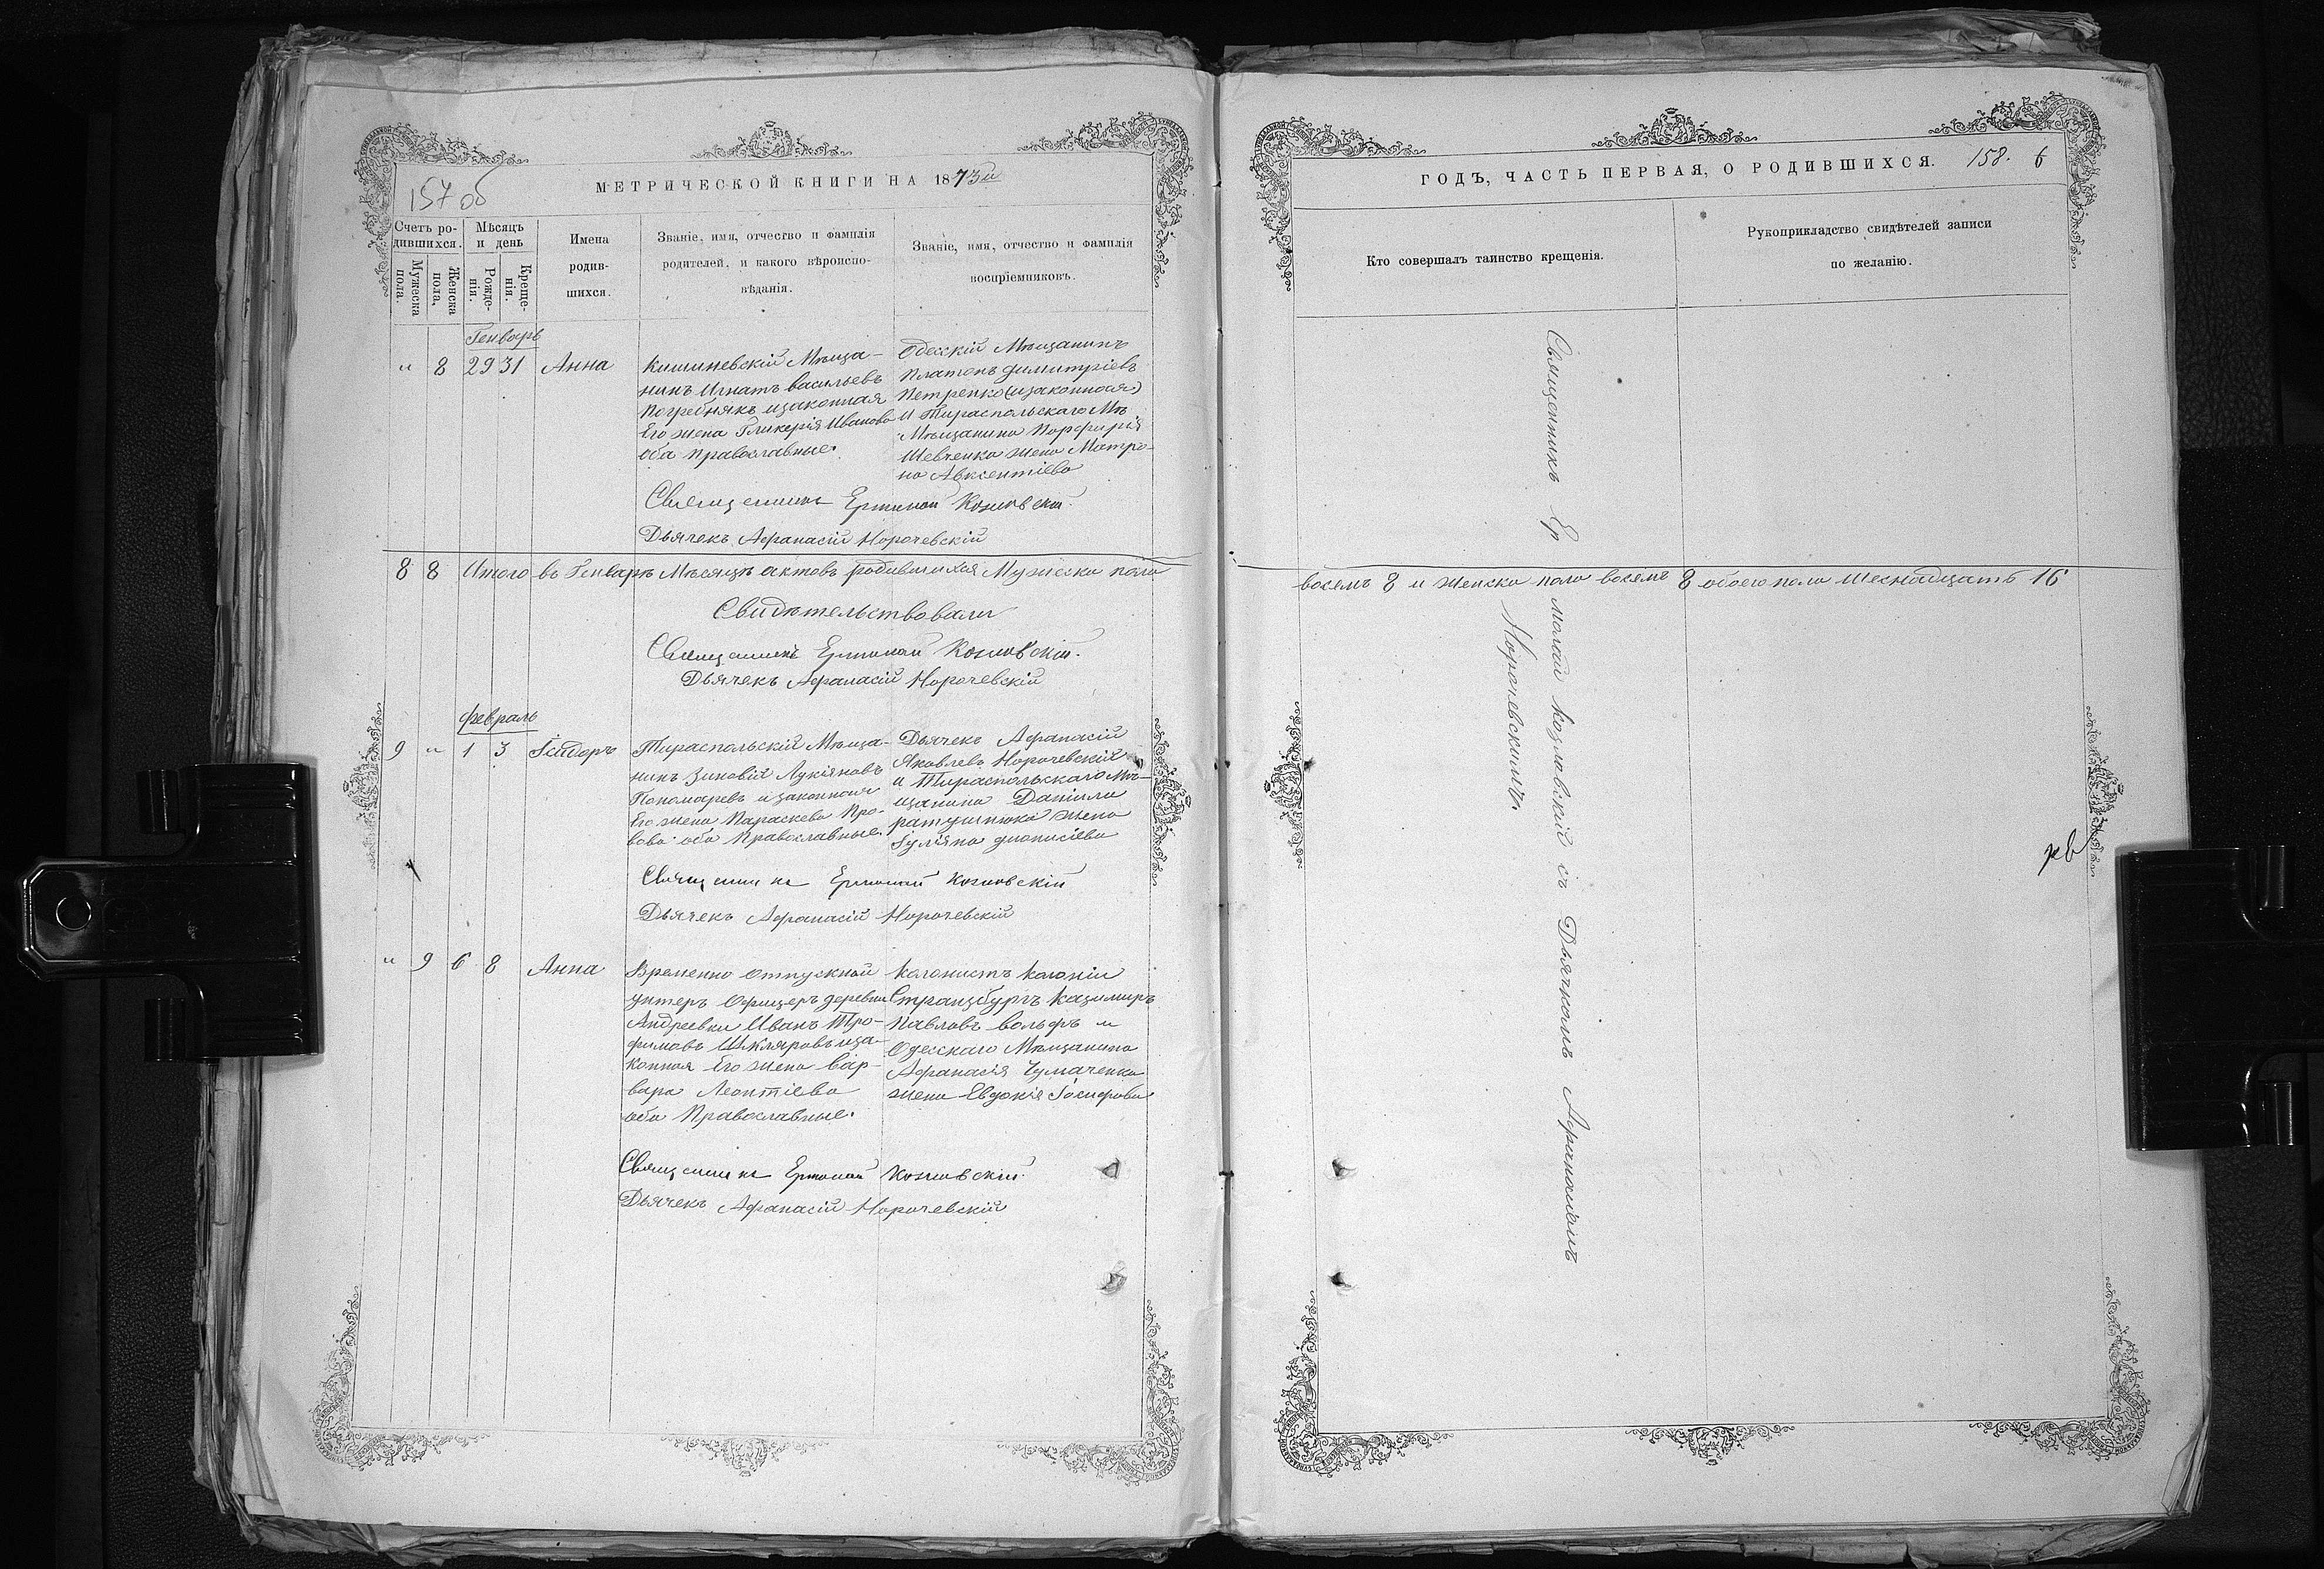 157 об
МЕТРИЧЕСКОЙ КНИГИ НА 1873й
Счетъ ро-
дившихся.
Мужеска
пола.
Женска
пола.
Мѣсяцъ
и день
Рожде-
нія.
Креще-
нія.
Имена
родив-
шихся.
Званіе, имя, отчество и фамилія
родителей, и какого вѣроиспо-
вѣданія.
Званіе, имя, отчество и фамилія
воспріемниковъ.
Генварь
" 8 29 31 Анна
Кишиневскій Мѣща-
нинъ Игнатъ васильевъ
Погребнякъ изаконная
Его жена Гликерія Иванова
оба православные.
Одесскій Мѣщанинъ
Платонъ димитріевъ
Петренко (изаконная)
и Тираспольскаго Мѣ
Мѣщанина Порфирія
Шевченка жена Матро-
на Авксентіева
Священникъ Ермолай Козловскій.
Дьячекъ Афанасій Норочевскій
8 8 Итого въ Генварѣ Мѣсяцѣ актовъ родившихся Мужеска пола
Свидѣтельствовали
Священникъ Ермолай Козловскій.
Дьячекъ Афанасій Норочевскій
февраль
9 " 1 3 Ісидоръ
Тираспольскій Мѣща-
нинъ Зиновій Лукіяновъ
Пономаревъ изаконная
Его жена Параскева Про-
вова оба Православные.
Дьячекъ Афанасій
Яковлевъ Норочевскій
и Тираспольскаго Мѣ-
щанина Даніила
жена
Іуліяна дионисіева
Священникъ Ермолай Козловскій
Дьячекъ Афанасій Норочевскій
" 9 6 8 Анна
Временно отпускной
унтеръ Офицеръ деревни
Андреевки Иванъ Тро-
фимовъ Шкляровъ иза-
конная Его жена Вар-
вара Леонтіева
оба Православные.
Колонистъ колоніи
Страцбургъ Казимиръ
Павловъ вольфъ и
Одесскаго Мѣщанина
Афанасія Чумаченка
жена Евдокія Іосифова
Священникъ Ермолай Козловскій.
Дьячекъ Афанасій Норочевскій
ГОДЪ, ЧАСТЬ ПЕРВАЯ, О РОДИВШИХСЯ. 158. 6
Кто совершалъ таинство крещенія.
Рукоприкладство свидѣтелей записи
по желанію.
восемъ 8 и женска пола восемъ 8 обоего пола шеснадцать 16
Священникъ Ермолай Козловскій съ Дьячкомъ Афанасіемъ
Норочевскимъ.